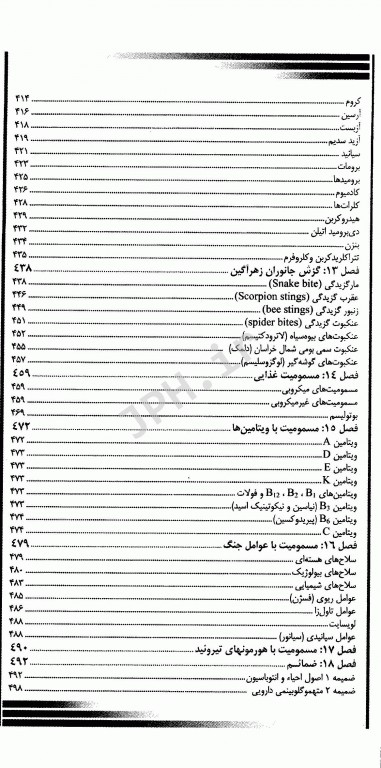 کروم ۴۱۴
آرسین ۴۱۶
آزبست ۴۱۸
آزید سدیم ۴۱۹
سیانید ۴۲۱
برومات ۴۲۳
برومیدها ۴۲۵
کادمیوم ۴۲۶
کلرات‌ها ۴۲۸
هیدروکربن ۴۲۹
دی‌برومید اتیلن ۴۳۲
بنزن ۴۳۴
تتراکلریدکربن وکلروفرم ۴۳۵
فصل ۱۳: گزش جانوران زهرآگین ۴۳۸
مارگزیدگی (Snake bite) ۴۳۸
عقرب گزیدگی (Scorpion stings) ۴۴۶
زنبور گزیدگی (bee stings) ۴۴۹
عنکبوت گزیدگی (spider bites) ۴۵۱
عنکبوت‌های بیوه‌سیاه (لاترودکتیسم) ۴۵۲
عنکبوت سمی بومی شمال خراسان (دلمک) ۴۵۵
عنکبوت‌های گوشه‌گیر (لوگزوسلیسم) ۴۵۷
فصل ۱۴: مسمومیت غذایی ۴۵۹
مسمومیت‌های میکروبی ۴۵۹
مسمومیت‌های غیرمیکروبی ۴۵۹
بوتولیسم ۴۶۹
فصل ۱۵: مسمومیت با ویتامین‌ها ۴۷۲
ویتامین A ۴۷۲
ویتامین D ۴۷۳
ویتامین E ۴۷۳
ویتامین K ۴۷۳
ویتامین‌های B1 ، B2 ، B12 و فولات ۴۷۳
ویتامین B3 (نیاسین و نیکوتینیک اسید) ۴۷۳
ویتامین B6 (پیریدوکسین) ۴۷۴
ویتامین C ۴۷۴
فصل ۱۶: مسمومیت با عوامل جنگ ۴۷۹
سلاح‌های هسته‌ای ۴۷۹
سلاح‌های بیولوژیک ۴۸۰
سلاح‌های شیمیایی ۴۸۳
عوامل ریوی (فسژن) ۴۸۵
عوامل تاول‌زا ۴۸۶
لویسایت ۴۸۸
عوامل سیانیدی (سیانور) ۴۸۸
فصل ۱۷: مسمومیت با هورمونهای تیروئید ۴۹۰
فصل ۱۸: ضمائم ۴۹۲
ضمیمه ۱ اصول احیاء و انتوباسیون ۴۹۲
ضمیمه ۲ متهموگلوبینمی دارویی ۴۹۸
JPH.ir